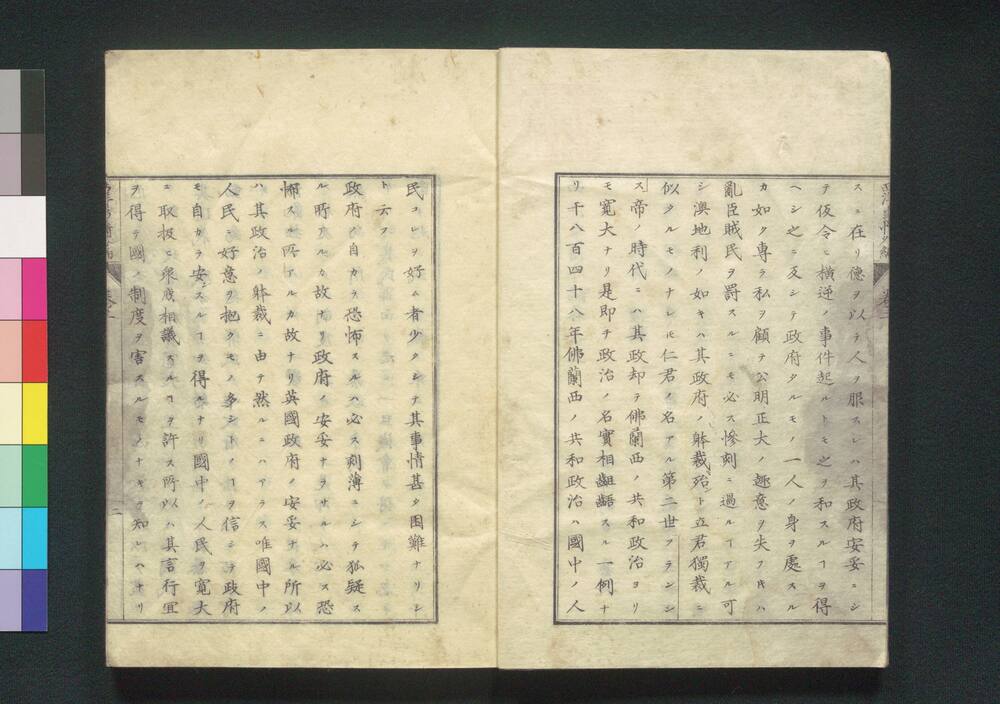 スニ在リ德ヲ以テ人ヲ服スレハ其政府安妥ニシ
テ仮令ヒ横逆ノ事件起ルトモ之ヲ和スルヿヲ得
ヘシ之ニ反シテ政府タルモノ一人ノ身ヲ處スル
カ如ク専ラ私ヲ顧テ公明正大ノ趣意ヲ失フ𪜈ハ
亂臣賊民ヲ罰スルニモ必ス惨刻ニ過ルヿアル可
シ澳地利ノ如キハ其政府ノ躰裁殆ント立君獨裁ニ
似タルモノナレ𪜈仁君ノ名アル第二世フランシ
ス帝ノ時代ニハ其政却テ佛蘭西ノ共和政治ヨリ
モ寛大ナリ是即チ政治ノ名實相齟齬スル一例ナ
リ千八百四十八年佛蘭西ノ共和政治ハ國中ノ人
民コレヲ好ム者少クシテ其事情甚タ困難ナリシ
ト云フ
政府ノ自カラ恐怖スルハ必ス刻薄ニシテ狐疑ス
ル所アルカ故ナリ政府ノ安妥ナラサルハ必ス恐
怖スル所アルカ故ナリ英國政府ノ安妥ナル所以
ハ其政治ノ躰裁ニ由テ然ルニハアラス唯國中ノ
人民ニ好意ヲ抱クモノ多シトノヿヲ信シテ政府
モ自カラ安ンスルヿヲ得ルナリ國中ノ人民ヲ寛大
ニ取扱ヒ衆庶相議スルヿヲ許ス所以ハ其言行冝
ヲ得テ國ノ制度ヲ害スルモノナキヲ知レハナリ
卷之一
二